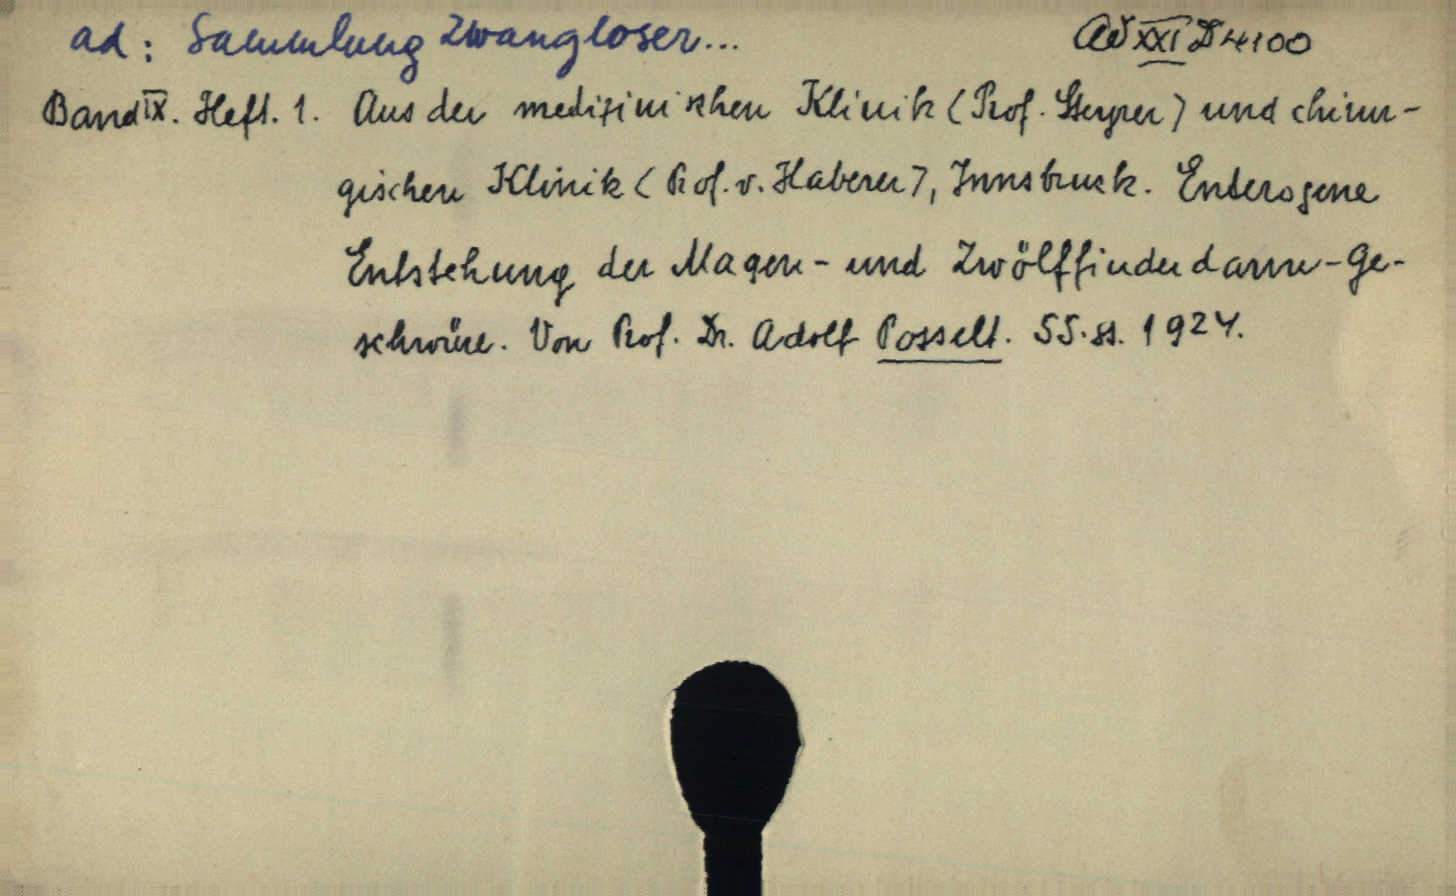 ad: Sammlung zwangloser...
Ad XXI D 4100
Band IX. Heft. 1. Aus der medizinischen Klinik (Prof. Steyrer) und chirur-
gischen Klinik (Prof. v. Haberer), Innsbruck. Enterogene
Entstehung der Magen- und Zwölffinderdarm-Ge-
schwüre. Von Prof. Dr. Adolf Posselt. 55. ss. 1924.